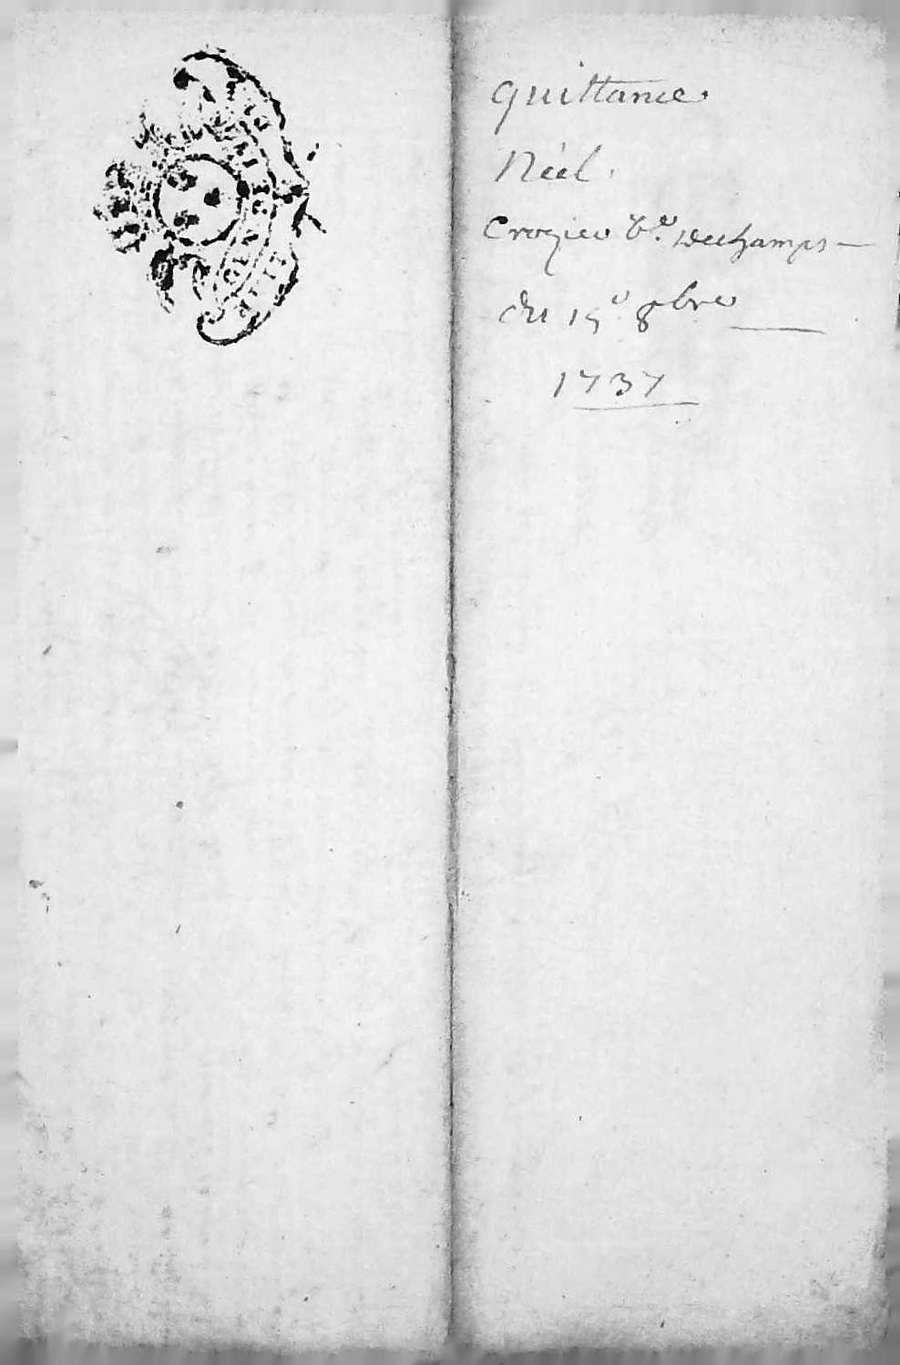 quittance
Néel
Crozier Ve. Dechamps —
du 19e 8bre
1737